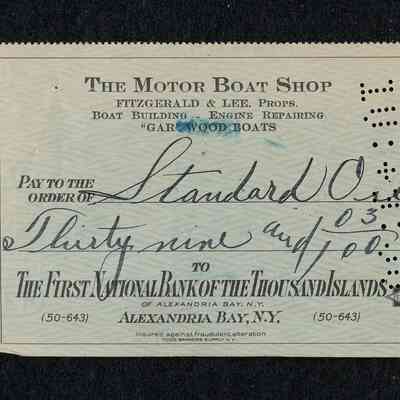 THE MOTOR BOAT SHOP
FITZGERALD & LEE, PROPS.
BOAT BUILDING - ENGINE REPAIRING
"GAR" WOOD BOATS
PAY TO THE
ORDER OF Standard
Thirty nine and 03/100
TO
THE FIRST NATIONAL BANK OF THE THOUSAND ISLANDS
OF ALEXANDRIA BAY, N.Y.
(50-643) ALEXANDRIA BAY, N.Y. (50-643)
Insured against fraudulent alteration
TODD BANKERS SUPPLY N.Y.